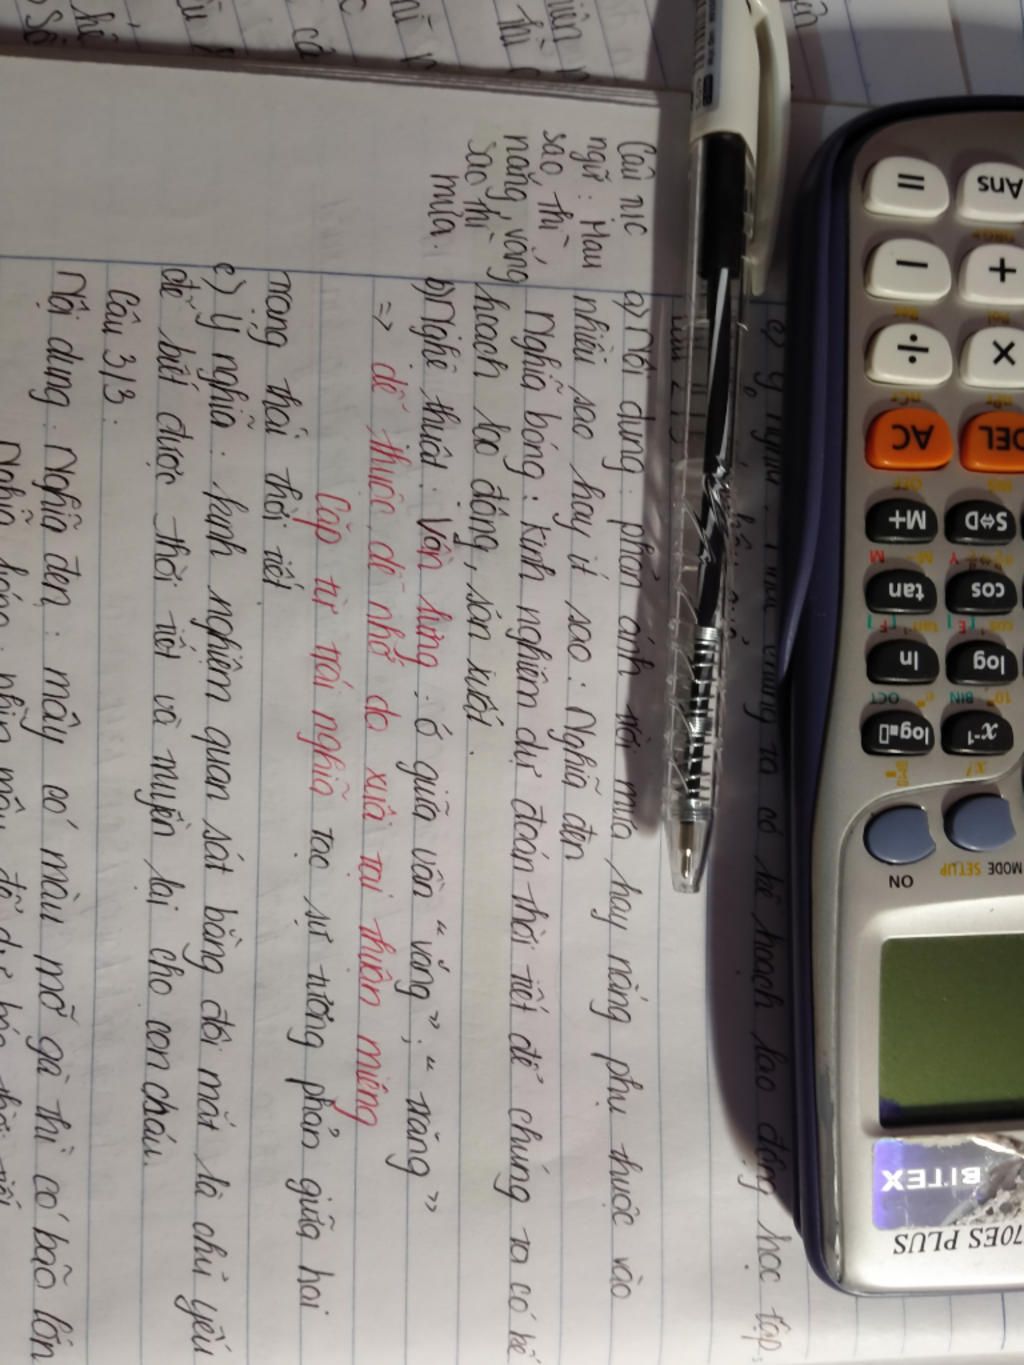 c) Ý nghĩa
ta có kế hoạch lao động học tập.
Câu 2/3
Câu tục
ngữ: Mau
sao thì
nắng, vắng
sao thì
mưa.
a) Nội dung: phản ánh trời mưa hay nắng phụ thuộc vào
nhiều sao hay ít sao: Nghĩa đen
Nghĩa bóng: kinh nghiệm dự đoán thời tiết để chúng ta có kế
hoạch lao động, sản xuất.
b) Nghệ thuật: Vần lưng: ở giữa vần "vắng"; "nắng"
=> dễ thuộc, dễ nhớ do xuôi tai thuận miệng
Cặp từ trái nghĩa tạo sự tương phản giữa hai
trạng thái thời tiết
c) Ý nghĩa: kinh nghiệm quan sát bằng đôi mắt là chủ yếu
để biết được thời tiết và truyền lại cho con cháu.
Câu 3/3:
Nội dung: Nghĩa đen: mây có màu mỡ gà thì có bão lớn
Nghĩa bóng: nhìn mây để dự báo thời tiết
Ans
=
+
−
×
÷
DEL
AC
S⇔D
M+
M
M−
OFF
cos
tan
log
ln
BIN
OCT
x⁻¹
log
MODE SETUP
ON
BITEX
70ES PLUS